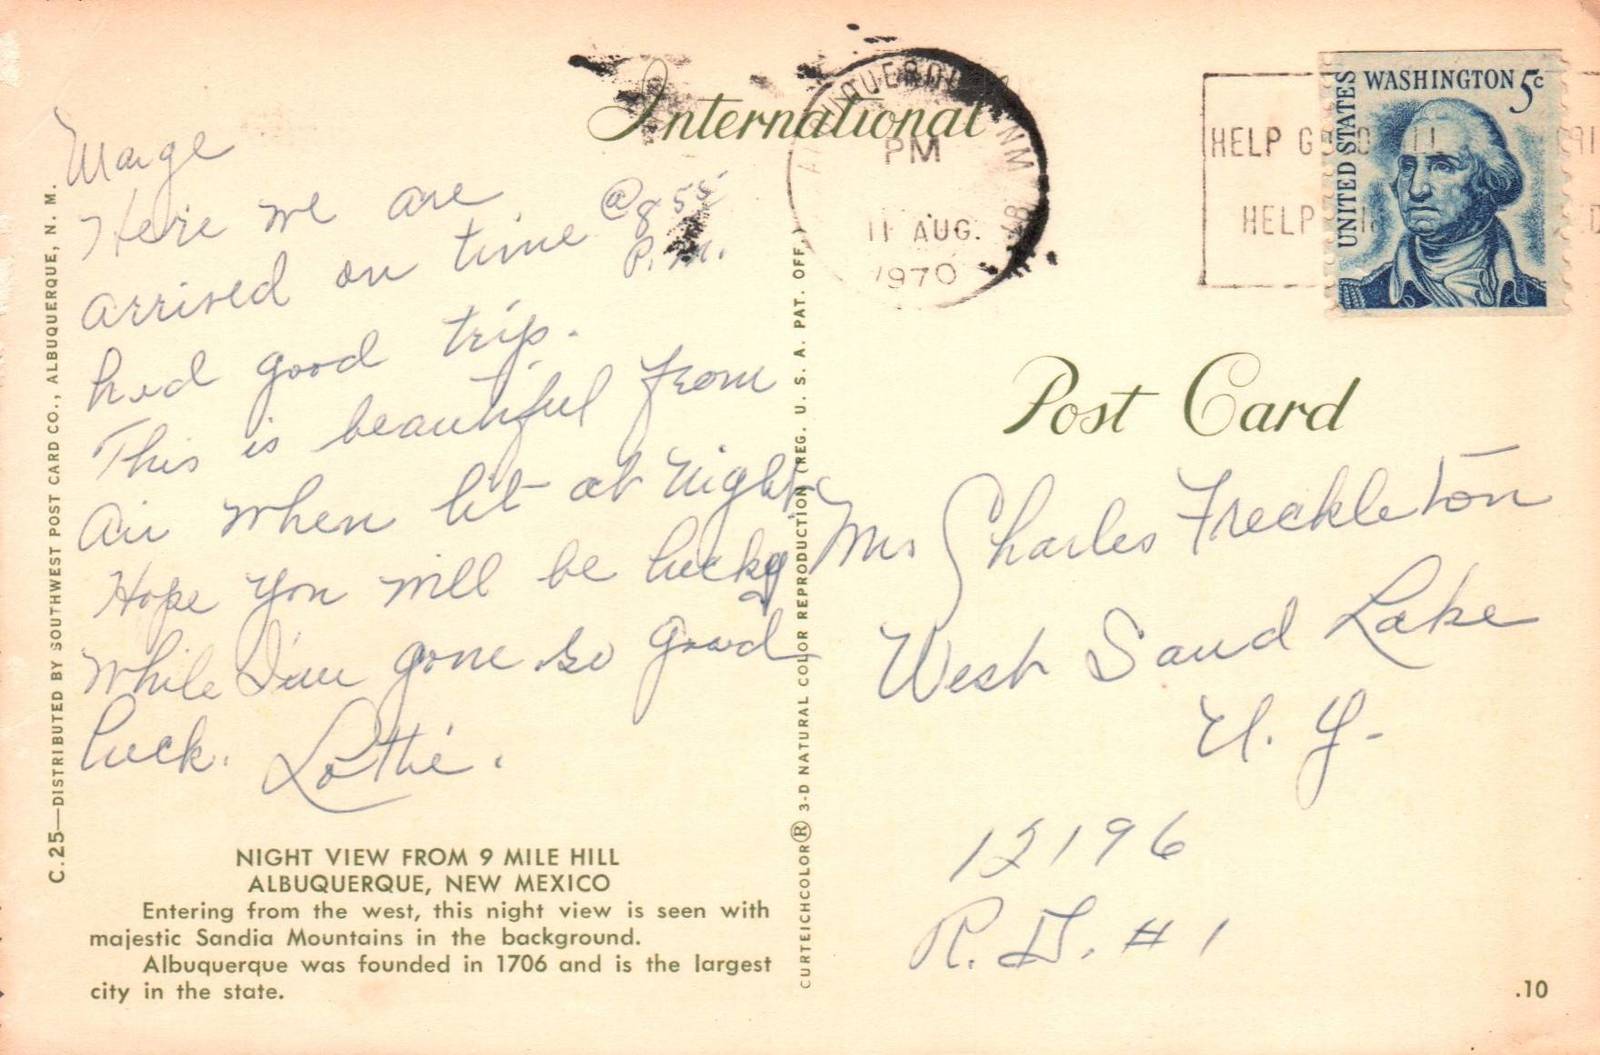 International
Marge
Here we are
arrived on time @ 8 55 P.M.
had good trip.
This is beautiful from
Air when lit at Night
Hope you will be lucky
while I'm gone so good
luck. Lottie.
NIGHT VIEW FROM 9 MILE HILL
ALBUQUERQUE, NEW MEXICO
Entering from the west, this night view is seen with
majestic Sandia Mountains in the background.
Albuquerque was founded in 1706 and is the largest
city in the state.
C.25—DISTRIBUTED BY SOUTHWEST POST CARD CO., ALBUQUERQUE, N. M.
CURTEICHCOLOR® 3-D NATURAL COLOR REPRODUCTION (REG. U. S. A. PAT. OFF.)
NM
PM
11 AUG.
1970
HELP
HELP
UNITED STATES
WASHINGTON 5c
Post Card
Mrs Charles Freckleton
West Sand Lake
N. Y.
12196
R.D. # 1
.10